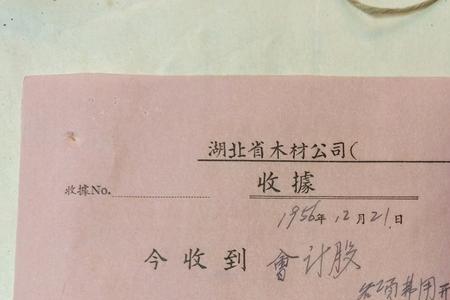 湖北省木材公司(
收據
收據No.
1956年12月21日
今收到 會计股
各项費用开